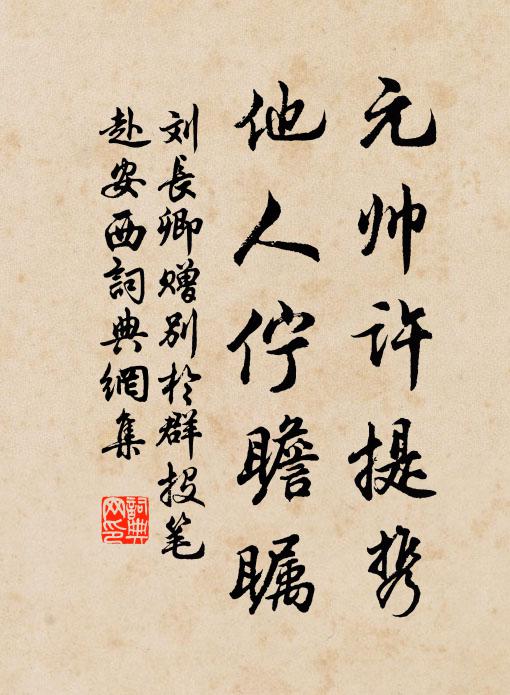 元帅许提携
他人伫瞻瞩
刘長卿赠别於群投笔
赴安西詞典網集
詞典網印